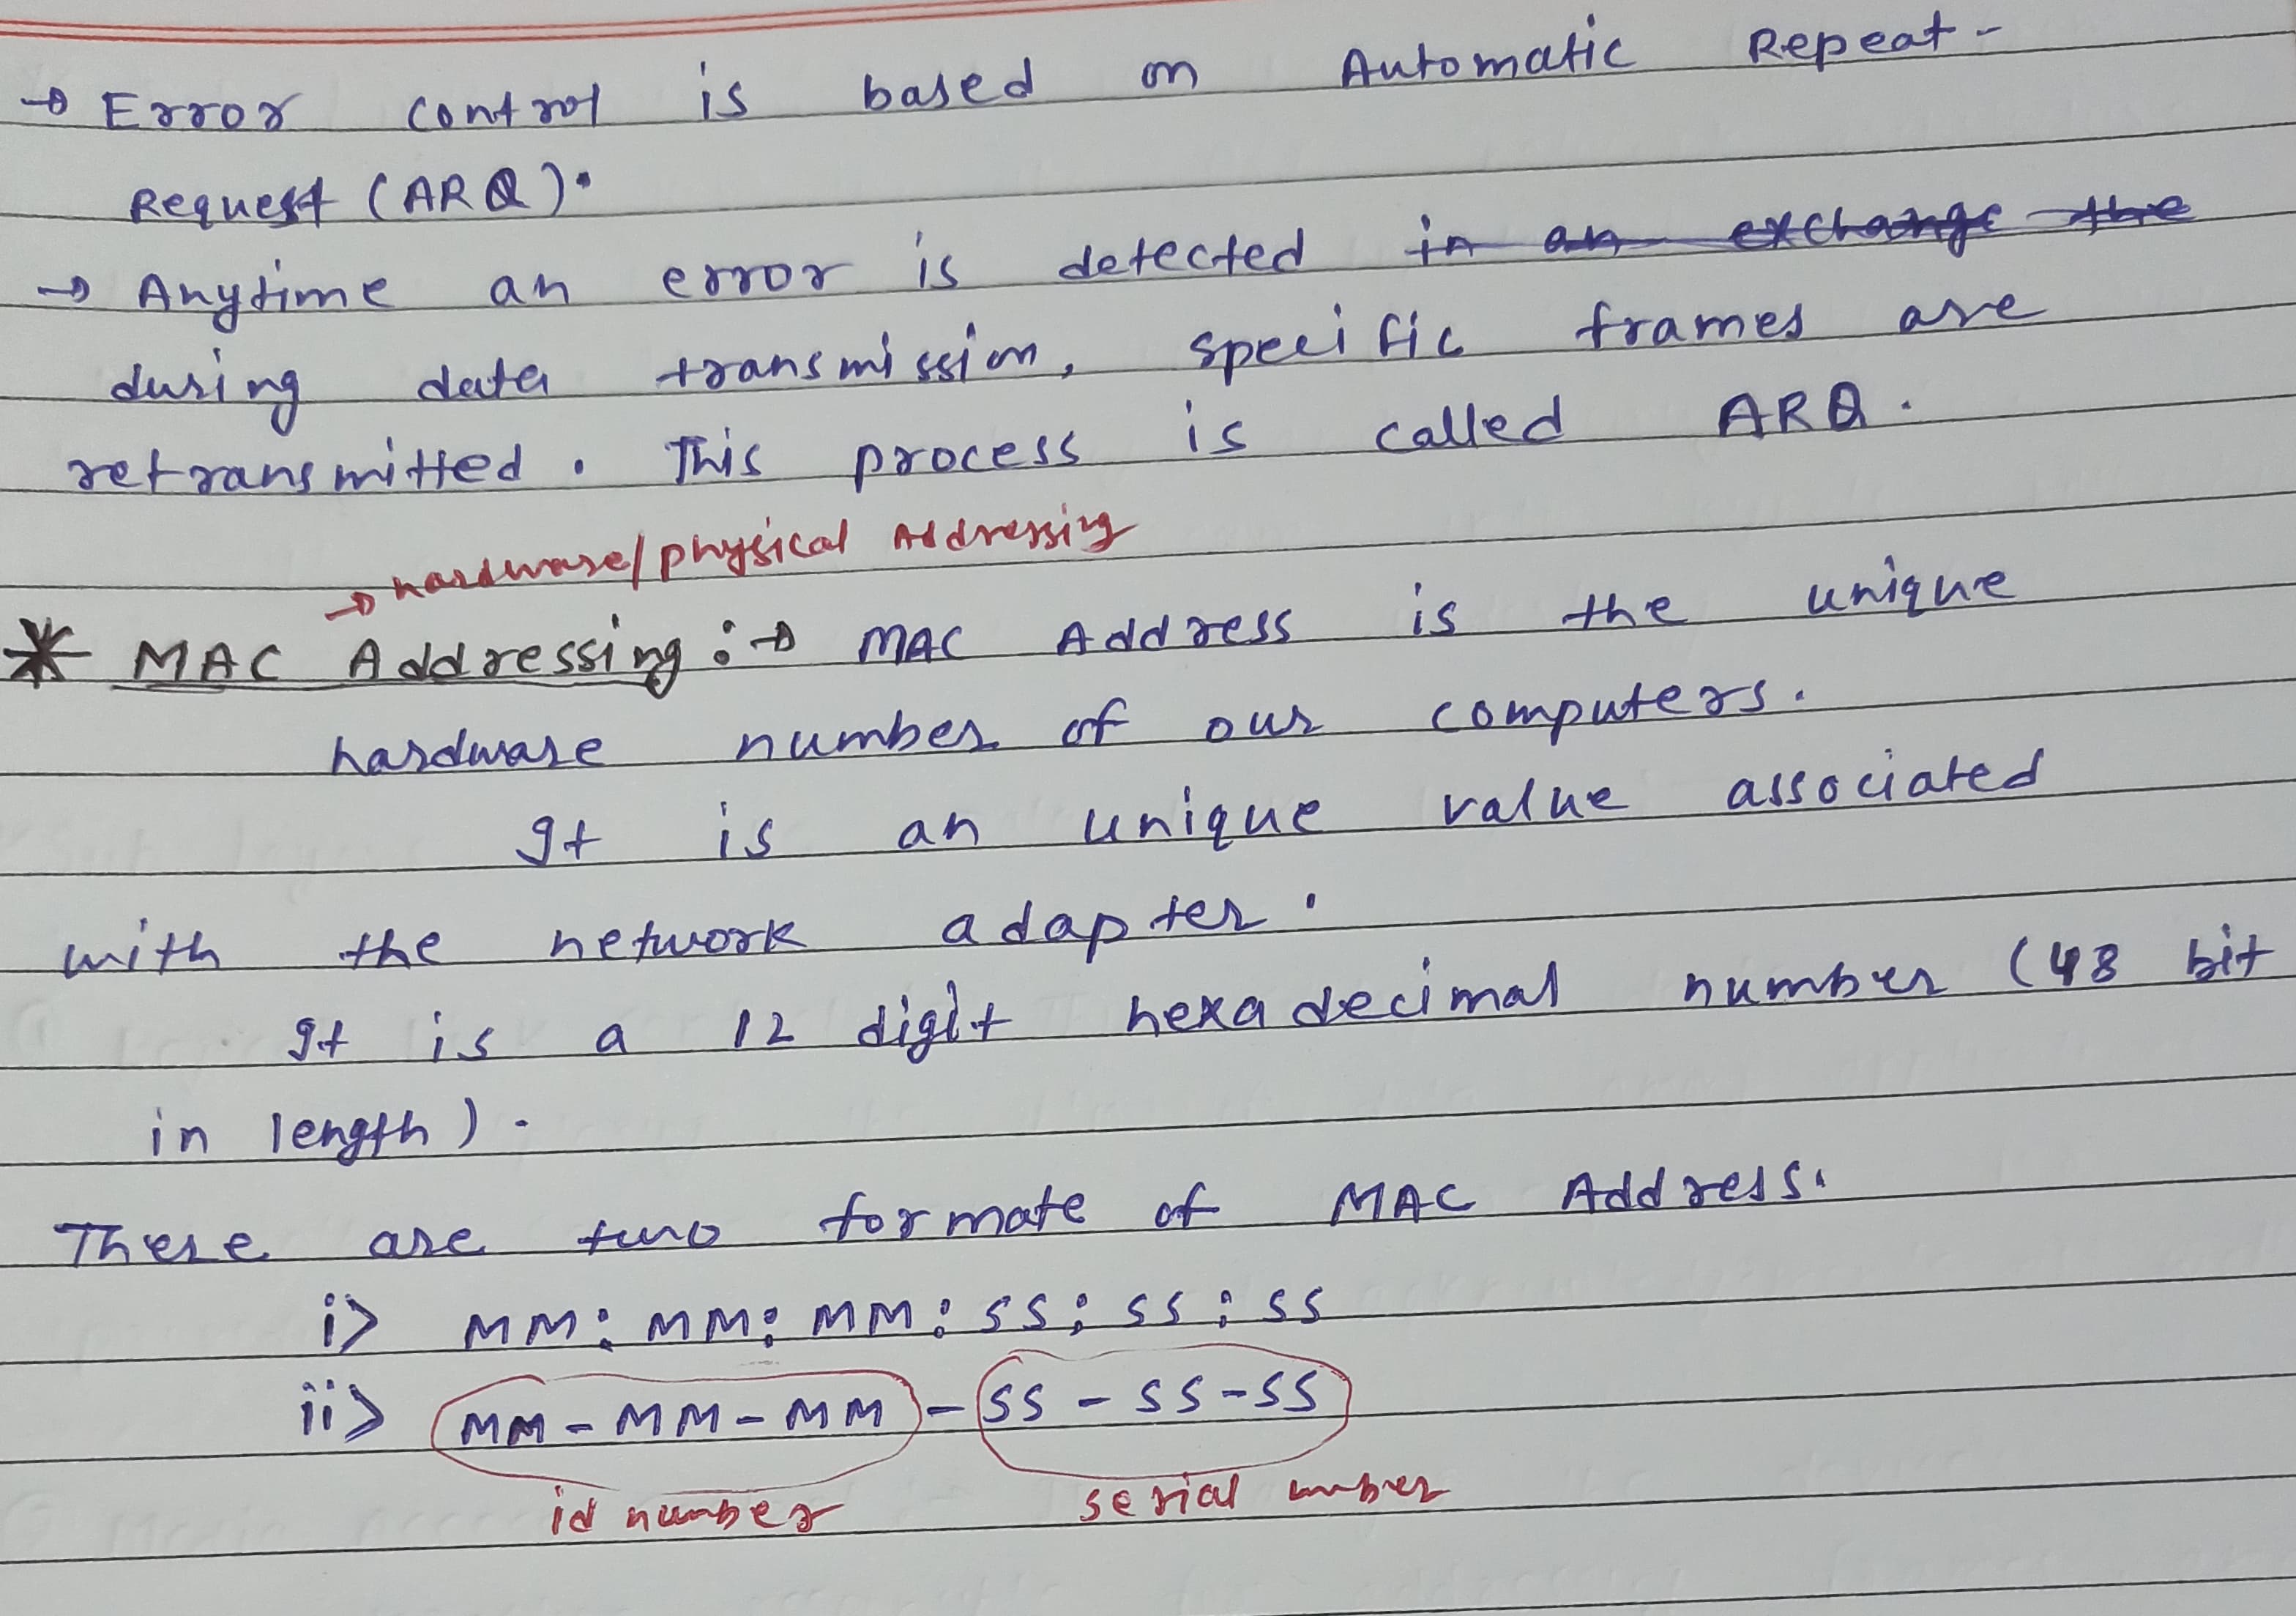 → Error control is based on Automatic Repeat-
Request (ARQ).
→ Anytime an error is detected in an exchange the
during data transmission, specific frames are
retransmitted. This process is called ARQ.
→ hardware/physical Addressing
* MAC Addressing :→ MAC Address is the unique
hardware number of our computers.
It is an unique value associated
with the network adapter.
It is a 12 digit hexadecimal number (48 bit
in length).
There are two formate of MAC Address.
i> MM:MM:MM:SS:SS:SS
ii> MM-MM-MM-SS-SS-SS
id number serial number